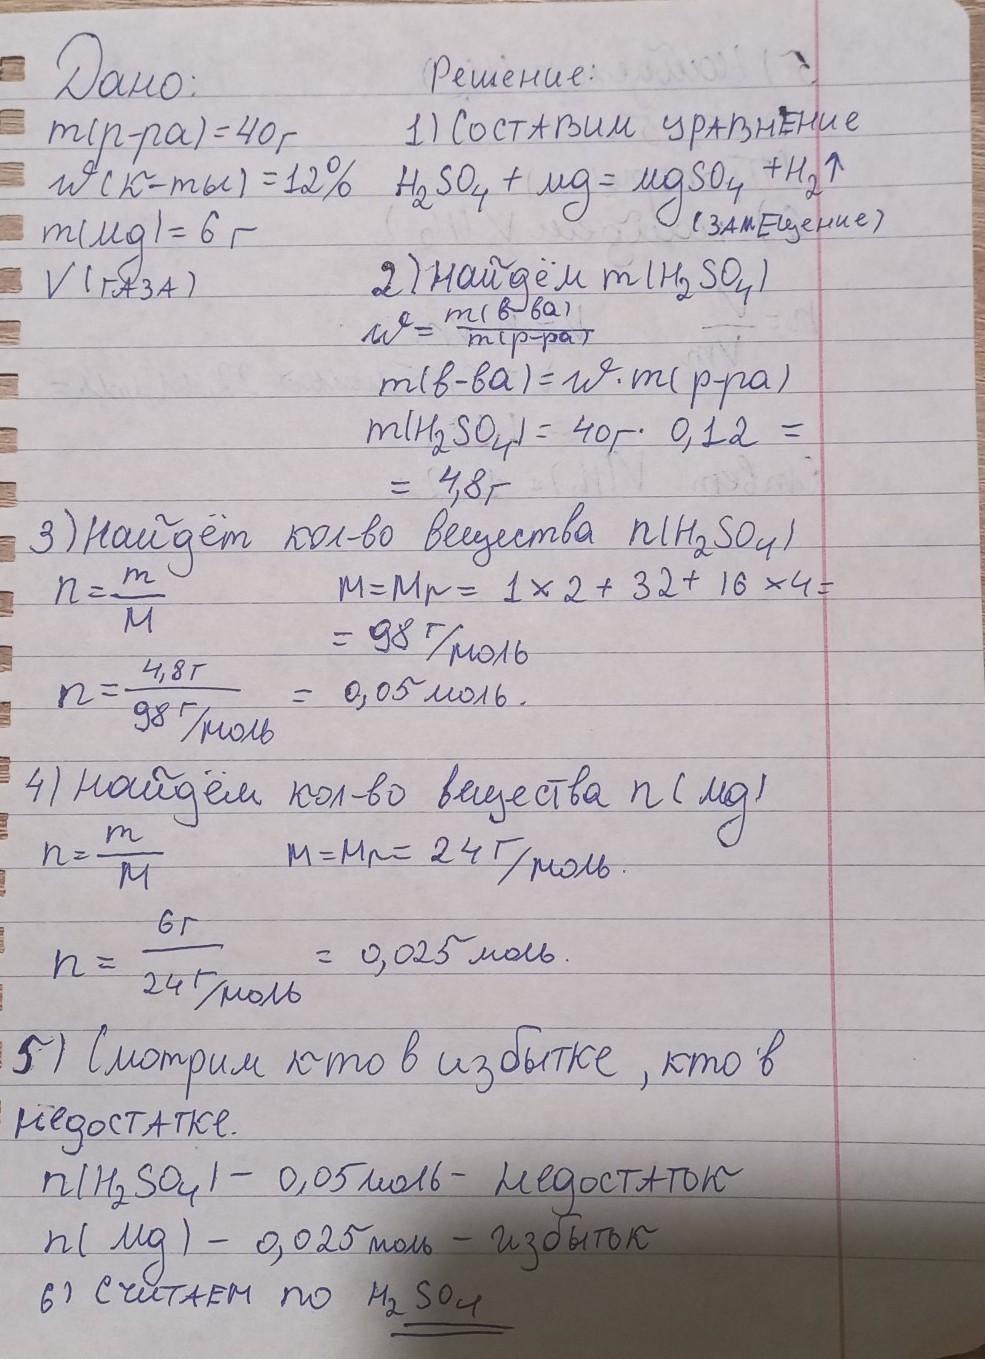 Дано: Решение:
m(р-ра)=40г 1) Составим уравнение
w(к-ты)=12% H₂SO₄ + Mg = MgSO₄ + H₂↑
m(Mg)=6г (замещение)
V(газа) 2) Найдём m(H₂SO₄)
w = m(в-ва)/m(р-ра)
m(в-ва)=w·m(р-ра)
m(H₂SO₄)= 40г· 0,12 =
= 4,8г
3) Найдёт кол-во вещества n(H₂SO₄)
n = m/M M=Mr= 1×2+32+16×4=
= 98 г/моль
n = 4,8г/98 г/моль = 0,05 моль.
4) Найдём кол-во вещества n(Mg)
n = m/M M=Mr= 24 г/моль.
n = 6г/24 г/моль = 0,025 моль.
5) Смотрим кто в избытке, кто в
недостатке.
n(H₂SO₄) – 0,05 моль – недостаток
n(Mg) – 0,025 моль – избыток
6) Считаем по H₂SO₄